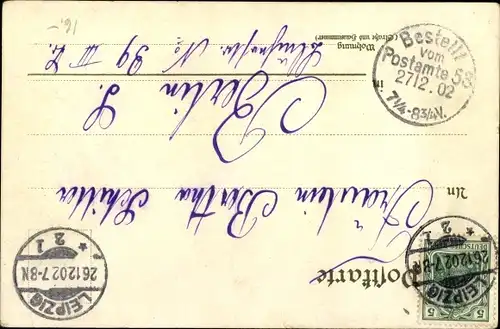 Postkarte
5 5
DEUTSCHES
LEIPZIG
26.12.02.7-8N
* 2 1 *
LEIPZIG
26.12.02.7-8N
* 2 1 *
An
Fräulein Bertha Schiller
in
Berlin
S.
Wohnung
(Straße und Hausnummer)
No 39 III
Bestellt
vom
Postamte 53
27/2.02
7¼-8¾V.
16,-